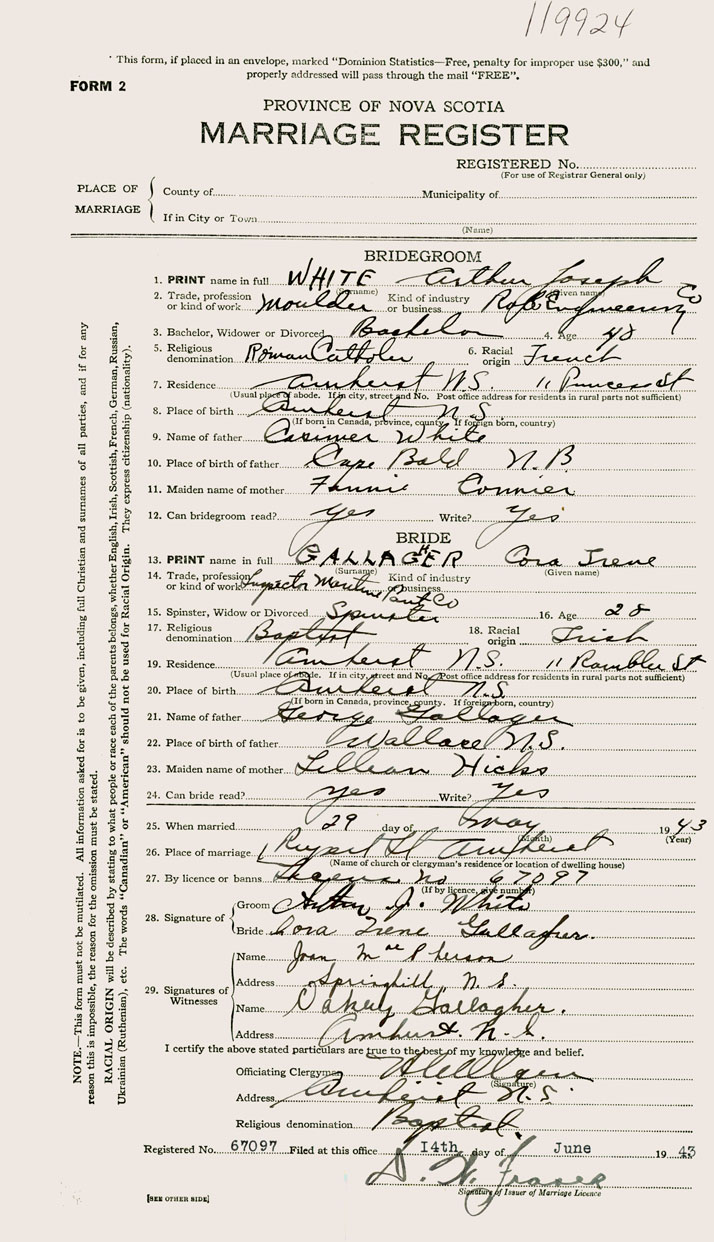 119924
This form, if placed in an envelope, marked "Dominion Statistics—Free, penalty for improper use $300," and
properly addressed will pass through the mail "FREE".
FORM 2
PROVINCE OF NOVA SCOTIA
MARRIAGE REGISTER
REGISTERED No.
(For use of Registrar General only)
PLACE OF MARRIAGE
County of Municipality of
If in City or Town
(Name)
BRIDEGROOM
1. PRINT name in full WHITE Arthur Joseph
(Surname) (Given name)
2. Trade, profession or kind of work Moulder Kind of industry or business Robb Engineering Co
3. Bachelor, Widower or Divorced Bachelor 4. Age 48
5. Religious denomination Roman Catholic 6. Racial origin French
7. Residence Amherst N.S. 11 Princess St
(Usual place of abode. If in city, street and No. Post office address for residents in rural parts not sufficient)
8. Place of birth Amherst N.S.
(If born in Canada, province, county. If foreign born, country)
9. Name of father Casimer White
10. Place of birth of father Cape Bald N.B.
11. Maiden name of mother Fannie Cormier
12. Can bridegroom read? yes Write? Yes
BRIDE
13. PRINT name in full GALLAGHER Cora Irene
(Surname) (Given name)
14. Trade, profession or kind of work Inspector Maritime Co Kind of industry or business
15. Spinster, Widow or Divorced Spinster 16. Age 28
17. Religious denomination Baptist 18. Racial origin Irish
19. Residence Amherst N.S. 11 Rambler St
(Usual place of abode. If in city, street and No. Post office address for residents in rural parts not sufficient)
20. Place of birth Amherst N.S.
(If born in Canada, province, county. If foreign born, country)
21. Name of father George Gallager
22. Place of birth of father Wallace N.S.
23. Maiden name of mother Lillian Hicks
24. Can bride read? yes Write? Yes
25. When married 29 day of May 1943
(Month) (Year)
26. Place of marriage Rupert St Amherst
(Name of church or clergyman's residence or location of dwelling house)
27. By licence or banns License no 67097
(If by licence, give number)
28. Signature of
Groom Arthur J. White
Bride Cora Irene Gallagher.
29. Signatures of Witnesses
Name Joan MacPherson
Address Springhill, N.S.
Name Oakley Gallagher.
Address Amherst. N.S.
I certify the above stated particulars are true to the best of my knowledge and belief.
Officiating Clergyman
(Signature)
Address Amherst N.S.
Religious denomination Baptist.
Registered No. 67097 Filed at this office 14th day of June 1943
D. W. Fraser
Signature of Issuer of Marriage Licence
[SEE OTHER SIDE]
NOTE.—This form must not be mutilated. All information asked for is to be given, including full Christian and surnames of all parties, and if for any
reason this is impossible, the reason for the omission must be stated.
RACIAL ORIGIN will be described by stating to what people or race each of the parents belongs, whether English, Irish, Scottish, French, German, Russian,
Ukrainian (Ruthenian), etc. The words "Canadian" or "American" should not be used for Racial Origin. They express citizenship (nationality).